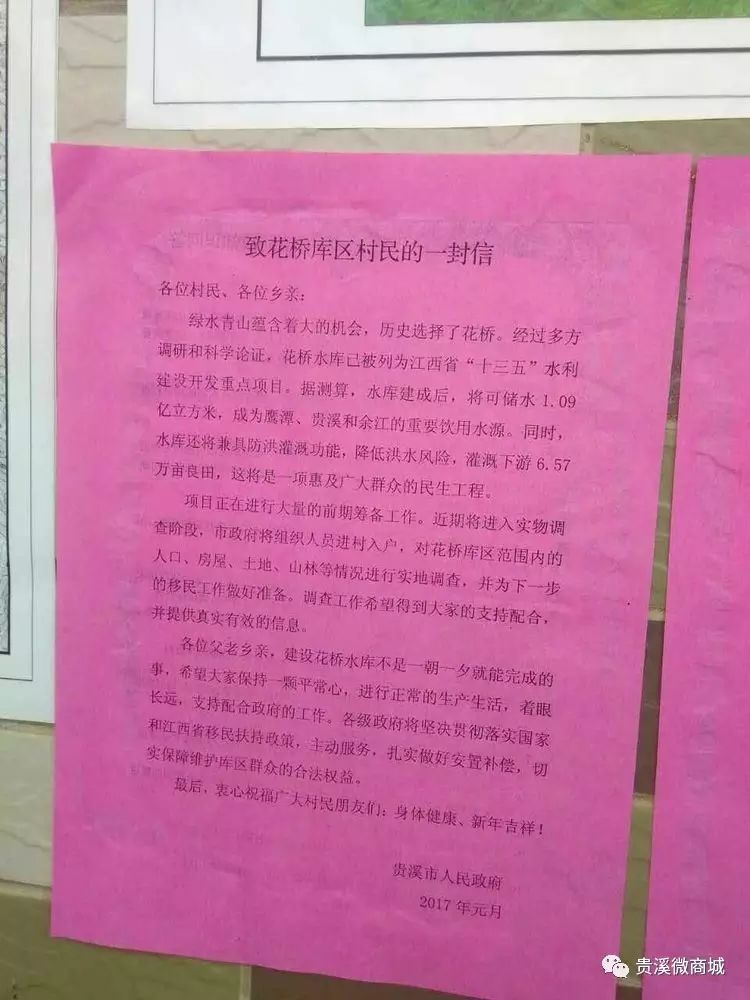 致花桥库区村民的一封信
各位村民、各位乡亲：
绿水青山蕴含着大的机会，历史选择了花桥。经过多方
调研和科学论证，花桥水库已被列为江西省“十三五”水利
建设开发重点项目。据测算，水库建成后，将可储水1.09
亿立方米，成为鹰潭、贵溪和余江的重要饮用水源。同时，
水库还将兼具防洪灌溉功能，降低洪水风险，灌溉下游6.57
万亩良田，这将是一项惠及广大群众的民生工程。
项目正在进行大量的前期筹备工作。近期将进入实物调
查阶段，市政府将组织人员进村入户，对花桥库区范围内的
人口、房屋、土地、山林等情况进行实地调查，并为下一步
的移民工作做好准备。调查工作希望得到大家的支持配合，
并提供真实有效的信息。
各位父老乡亲，建设花桥水库不是一朝一夕就能完成的
事，希望大家保持一颗平常心，进行正常的生产生活，着眼
长远，支持配合政府的工作。各级政府将坚决贯彻落实国家
和江西省移民扶持政策，主动服务，扎实做好安置补偿，切
实保障维护库区群众的合法权益。
最后，衷心祝福广大村民朋友们：身体健康、新年吉祥！
贵溪市人民政府
2017年元月
贵溪微商城